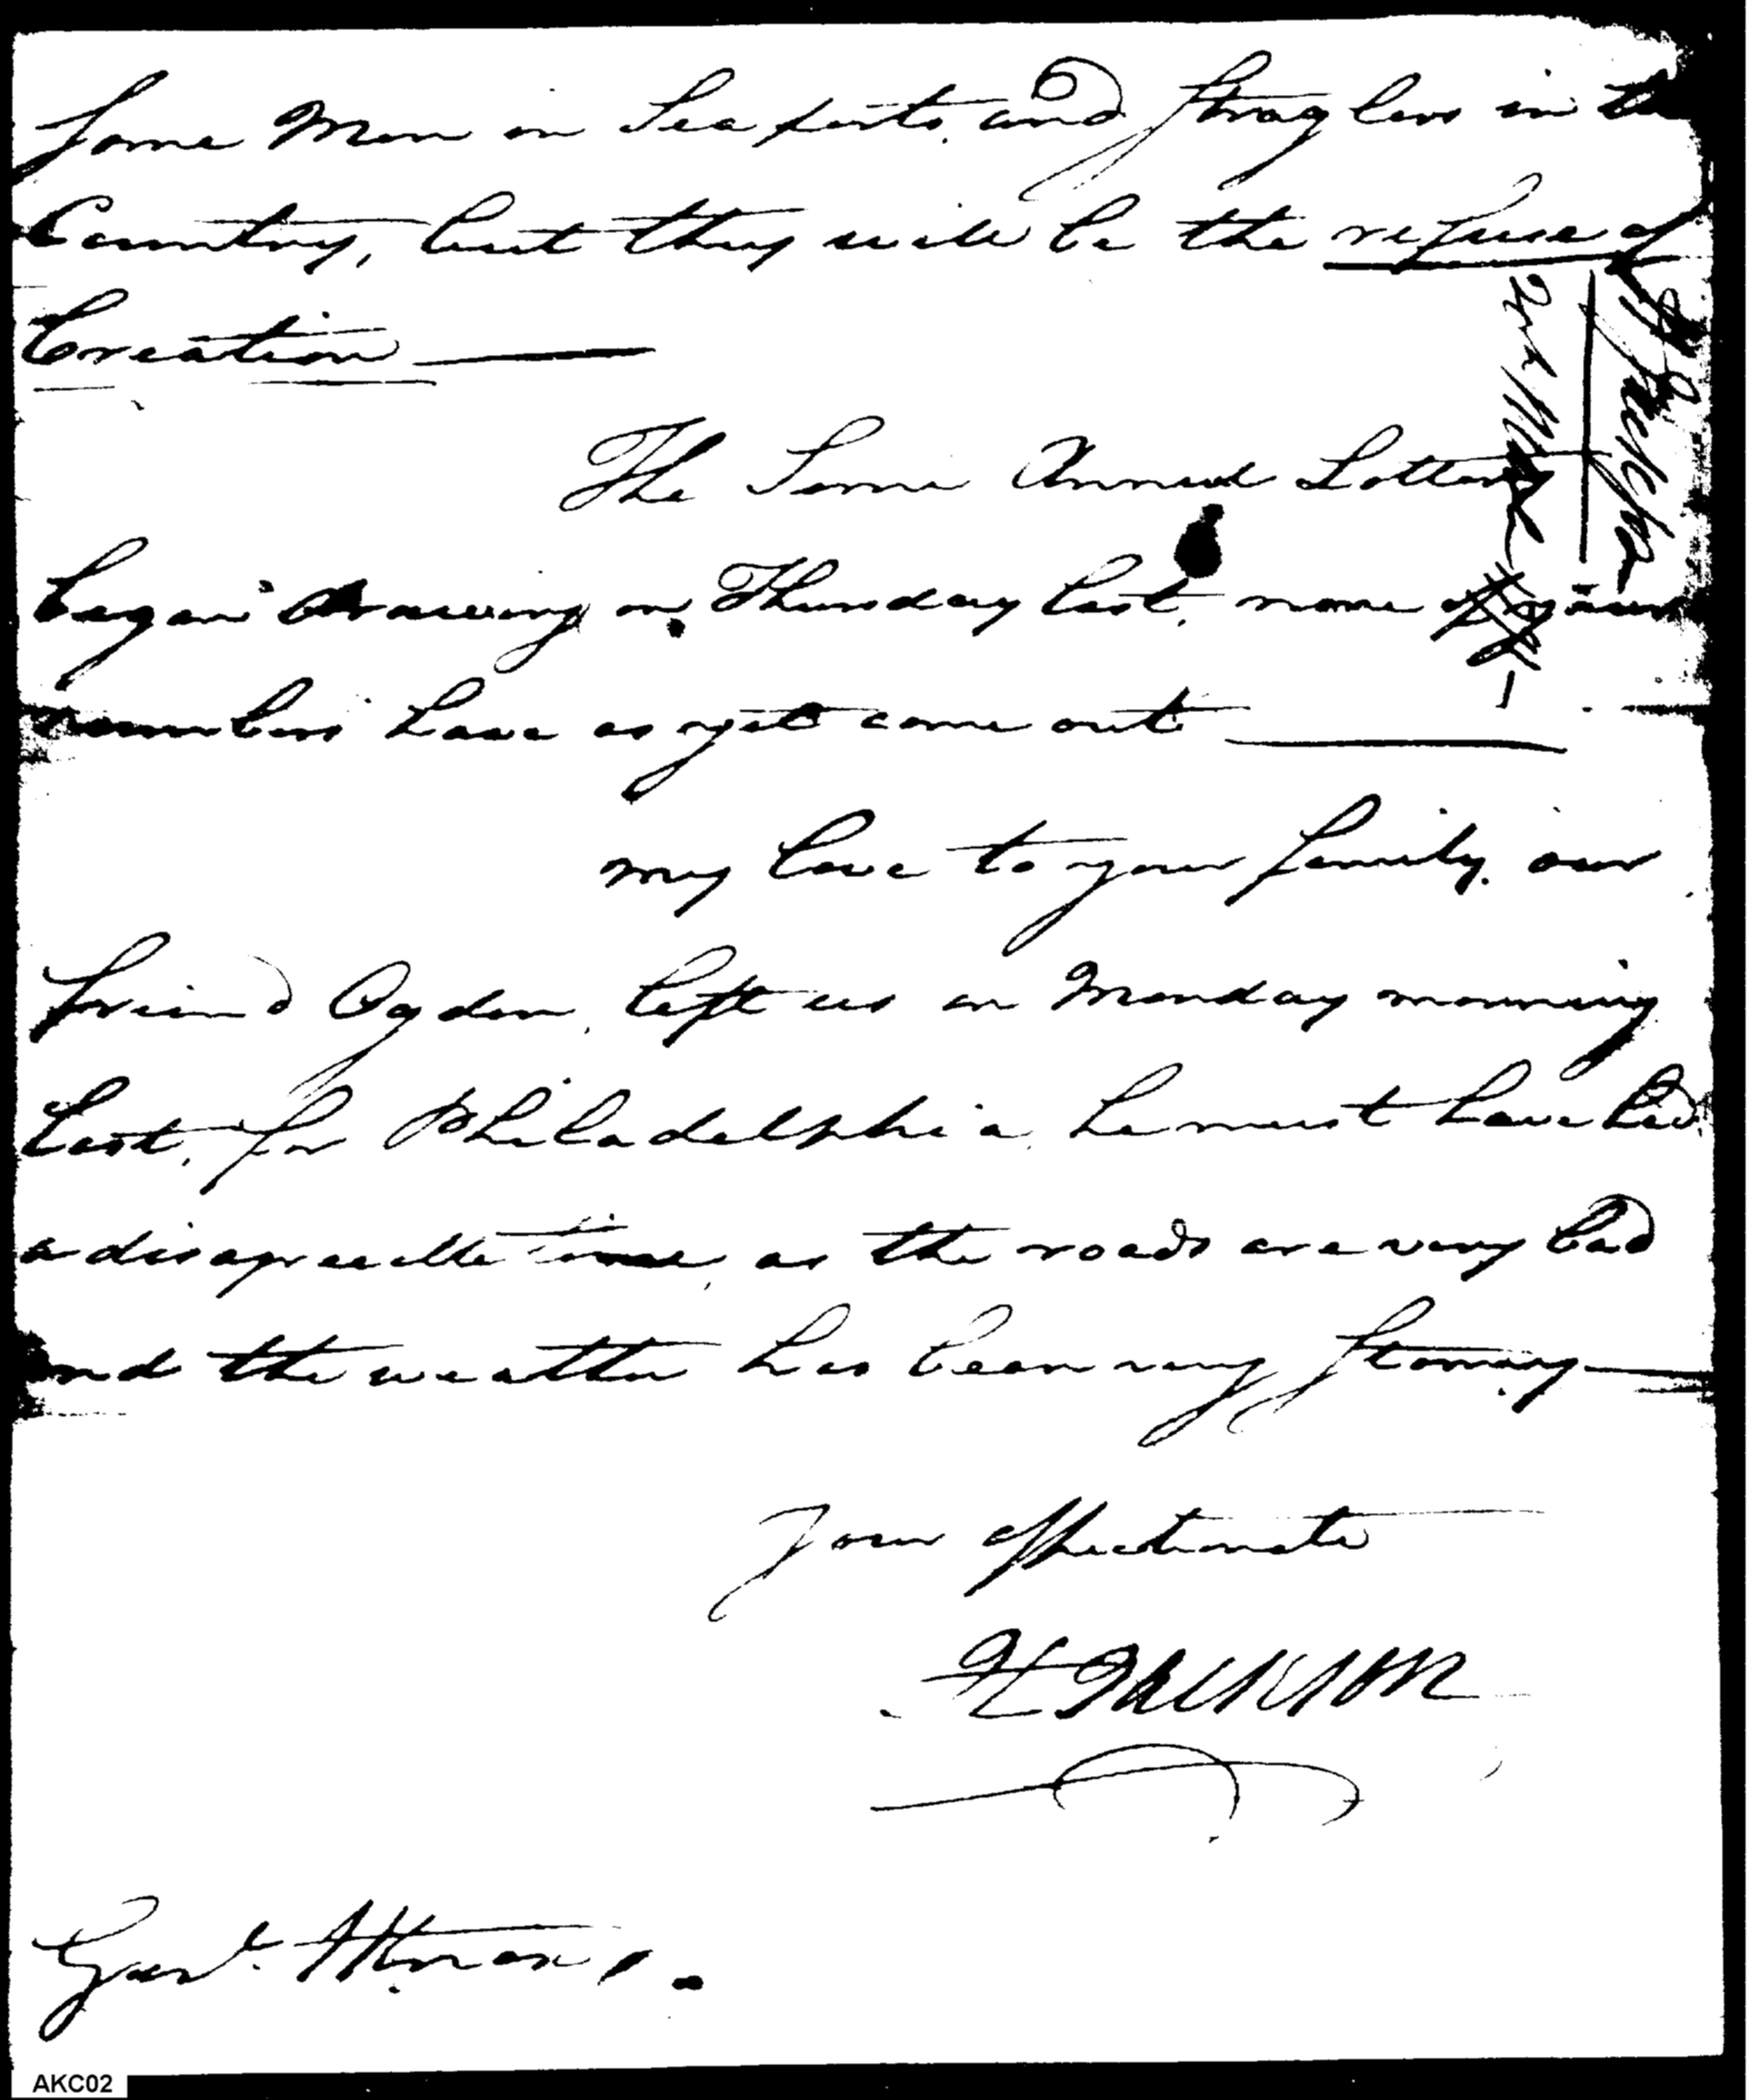 some Men in Sea ports, and straglers in the
Country, but they will be the refuse of
Creation
The Semi Annual Lottery
began drawing on Thursday last, none of your
numbers have as yet come out
my love to your family. our
friend Ogden, left us on Monday morning
last, for Philadelphia, he must have had
a disagreeable time, as the roads are very bad
and the weather has been very stormy
Your affectionate
H Jackson
Genl.
AKC02